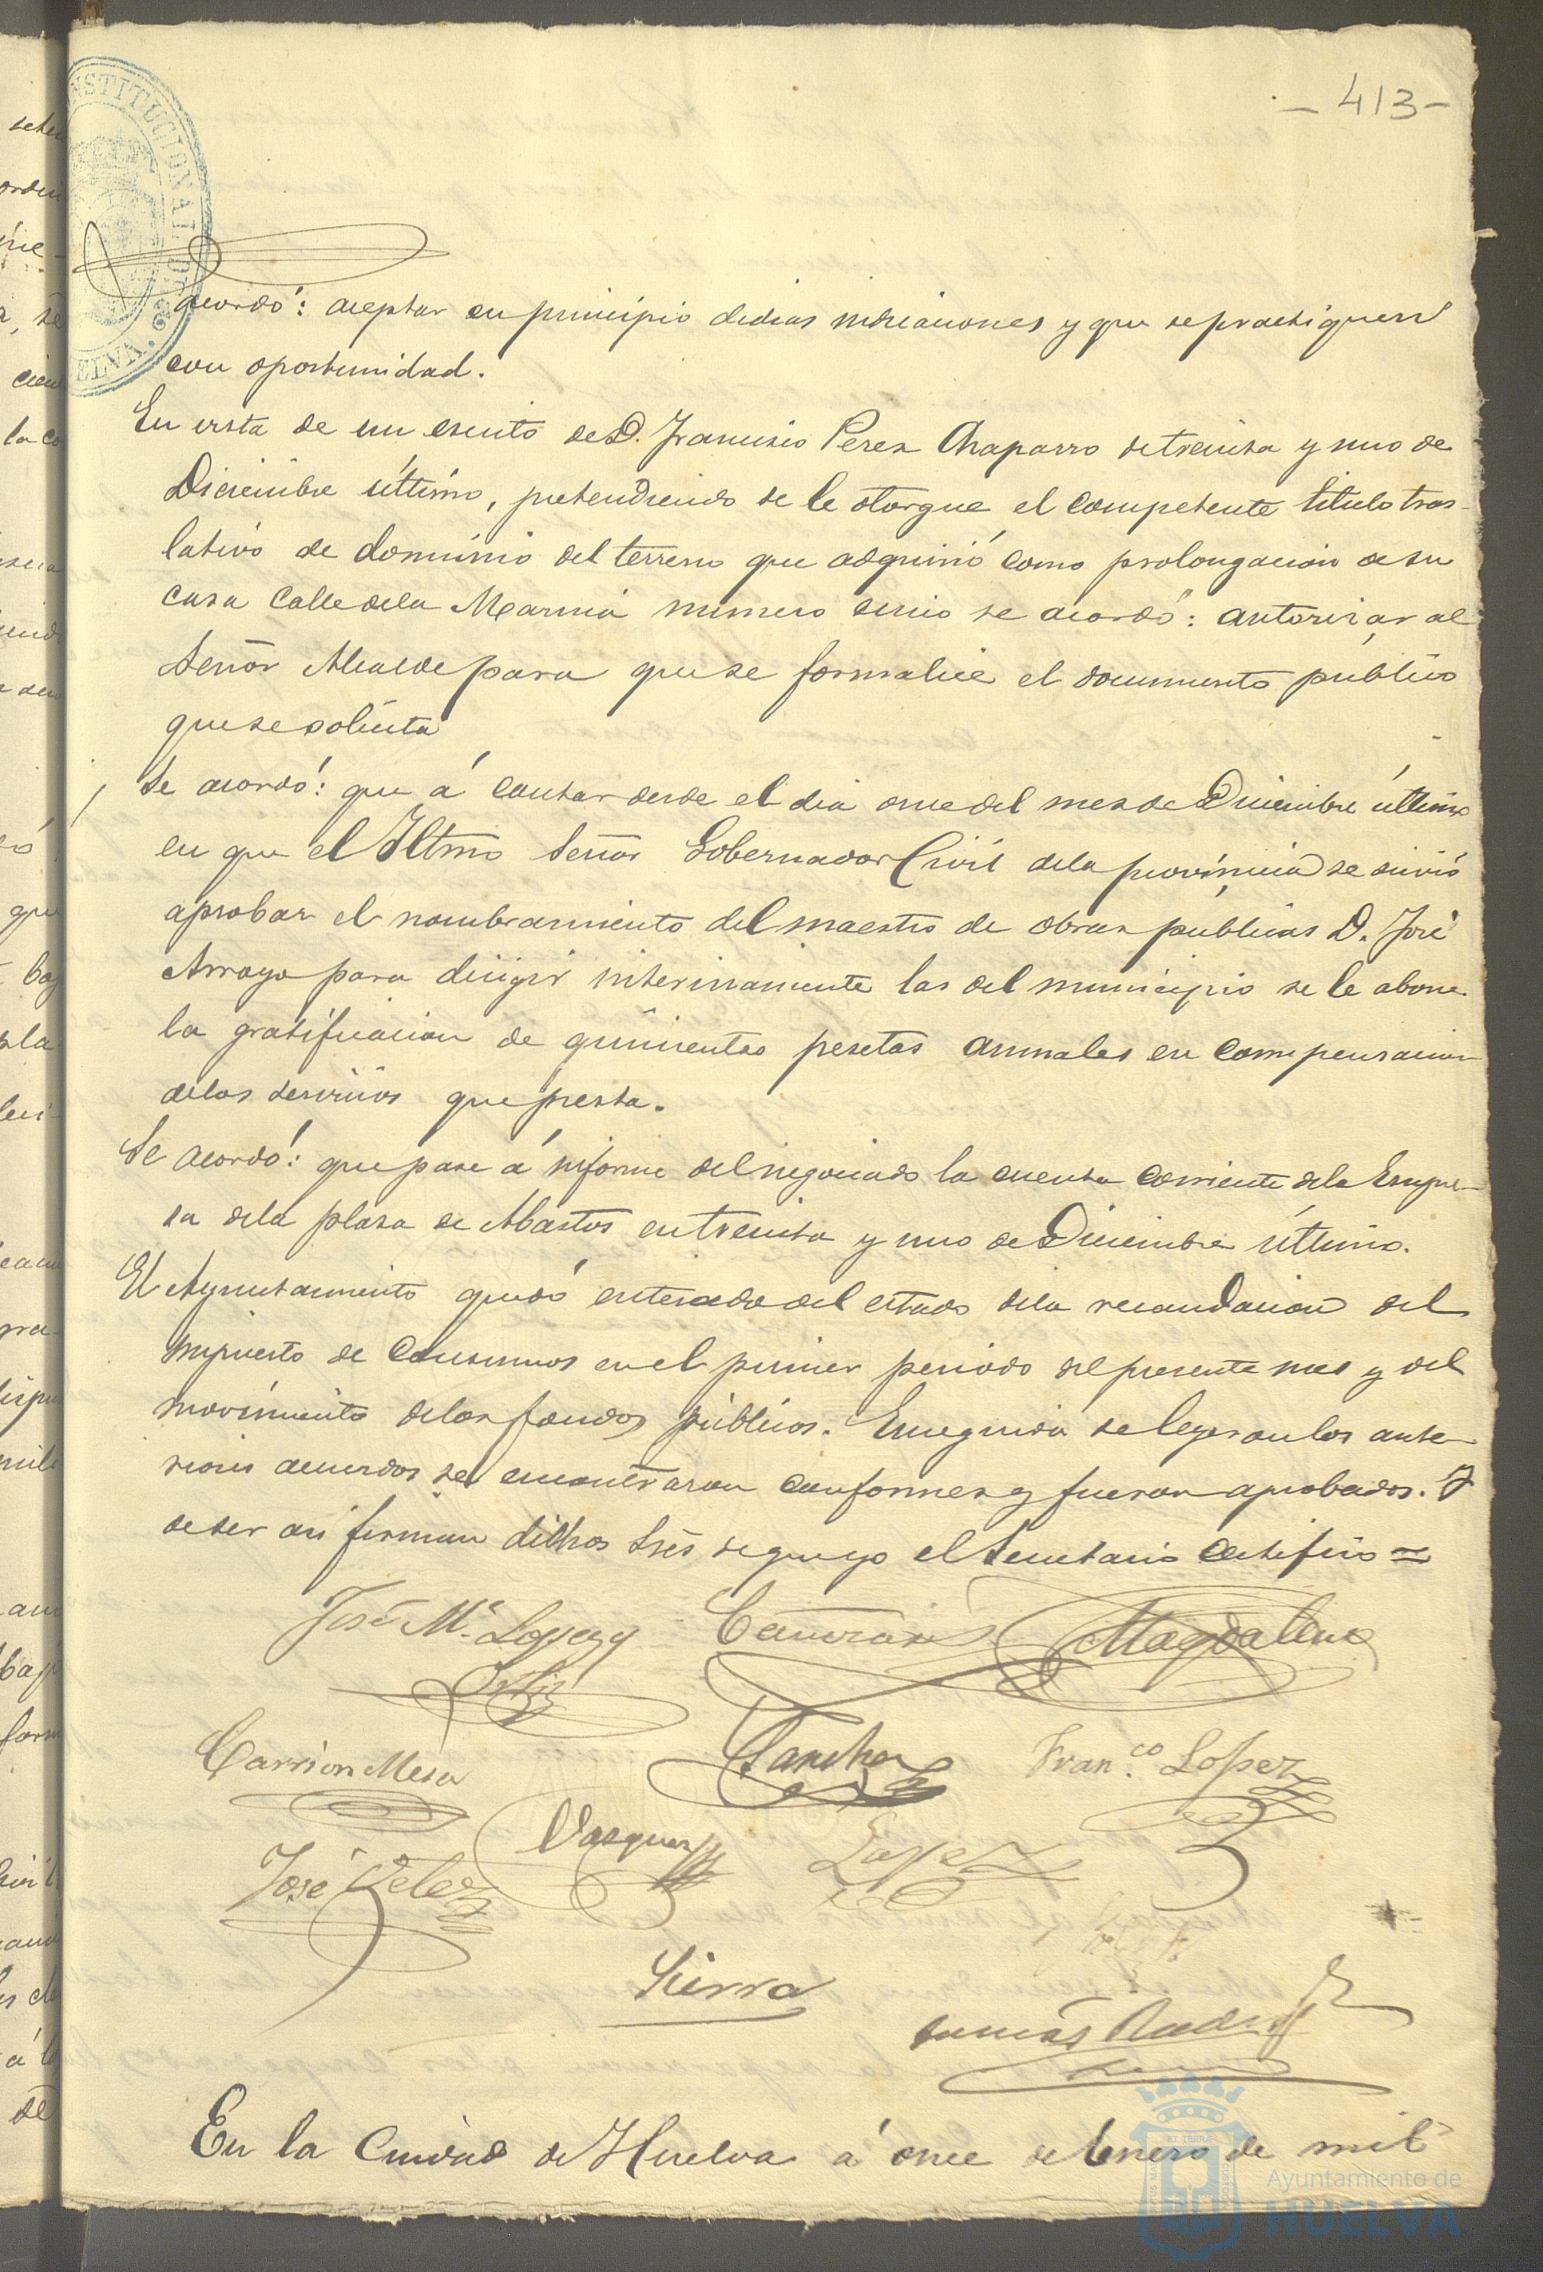 - 413 -
acordó: aceptar en principio dichas indicaciones y que se practiquen
con oportunidad.
En vista de un escrito de D. Francisco Perez Chaparro de treinta y uno de
Diciembre último, pretendiendo se le otorgue el competente titulo tras-
lativo de dominio del terreno que adquirió como prolongacion de su
casa Calle de la Marina numero cinco se acordó: autorizar al
Señor Alcalde para que se formalice el documento público
que se solicita
Se acordó: que á contar desde el dia once del mes de Diciembre último
en que el Iltmo Señor Gobernador Civil de la provincia se sirvió
aprobar el nombramiento del maestro de obras públicas D. José
Arroyo para dirigir interinamente las del municipio se le abone
la gratificacion de quinientas pesetas anuales en compensacion
de los servicios que presta.
Se acordó: que pase á informe del negociado la cuenta corriente de la Empre-
sa de la plaza de Abastos en treinta y uno de Diciembre último.
El Ayuntamiento quedó enterado del estado de la recaudacion del
impuesto de Consumos en el primer periodo del presente mes y del
movimiento de los fondos públicos. Enseguida se leyeron los ante-
riores acuerdos se encontraron conformes y fueron aprobados. Y
de ser asi firman dichos Sres de que yo el Secretario certifico =
José Mª Lopez y
Ortiz
Magdalena
Carrion Mesa
Sanchez
Fran.co Lopez
Vazquez
Lopez
José Velez
Sierra
Tomás
En la Ciudad de Huelva á once de Enero de mil
Ayuntamiento de
HUELVA